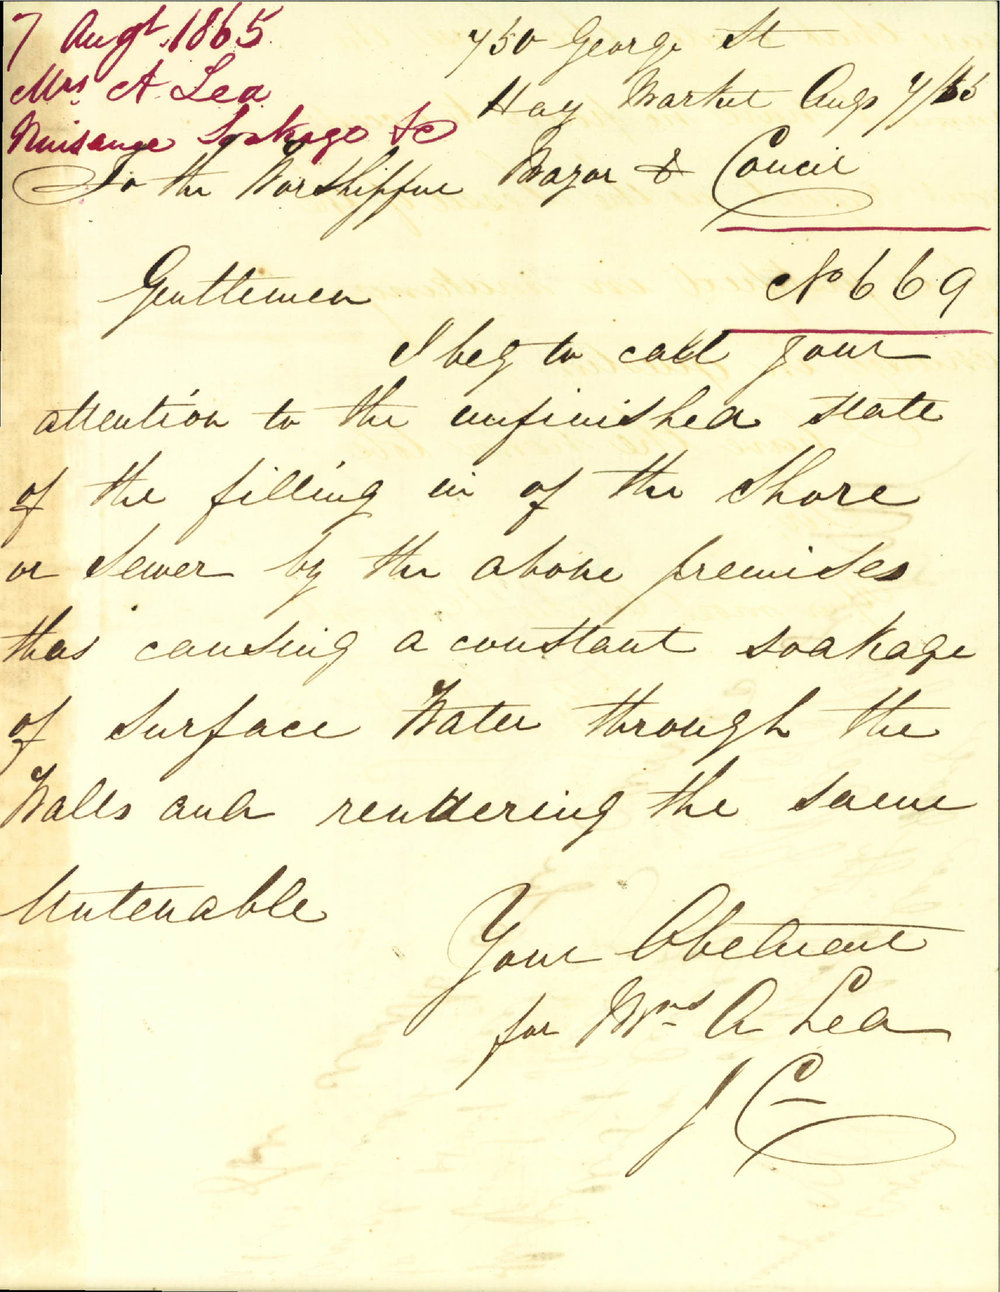 7 Augt. 1865
Mrs. A Lea
Nuisance Soakage &c
750 George St
Hay Market Augs 7/65
To the Worshipfue Mayor & Councie
No 669
Gentlemen
I beg to call your
attention to the unfinished state
of the filling in of the Shore
or Sewer by the above premises
thas causing a constant soakage
of surface Water through the
Walls and rendering the same
Untenable
Your Obedient
for Mrs A Lea
J C